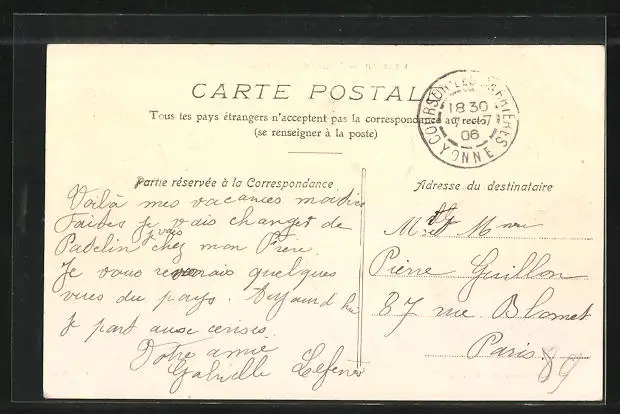 CARTE POSTALE
Tous les pays étrangers n'acceptent pas la correspondance au recto
(se renseigner à la poste)
COURSON-LES-CARRIÈRES
18 30
7-7
06
YONNE
Partie réservée à la Correspondance
Adresse du destinataire
Voilà mes vacances moitié
faites je vais changer de
je vais
chez mon Frère.
Je vous quelques
vues du pays. Aujourd hui
je part aux cerises.
Votre amie
Gabrielle
Mr et Mme
Pierre Guillon
87 rue Blomet
Paris.
89